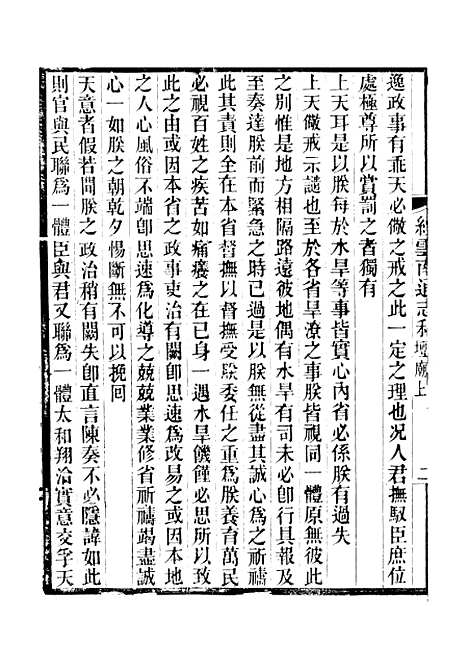 續雲南通志稿壇廟上 二
逸政事有乖天必儆之戒之此一定之理也况人君撫馭臣庶位
處極尊所以賞罰之者獨有
上天耳是以朕每於水旱等事皆實心內省必係朕有過失
上天儆戒示譴也至於各省旱潦之事朕皆視同一體原無彼此
之別惟是地方相隔路遠彼地偶有水旱有司未必卽行具報及
至奏達朕前而緊急之時已過是以朕無從盡其誠心爲之祈禱
此其責則全在本省督撫以督撫受朕委任之重爲朕養育萬民
必視百姓之疾苦如痛癢之在已身一遇水旱饑饉必思所以致
此之由或因本省之政事吏治有關卽思速爲改易之或因本地
之人心風俗不端卽思速爲化導之兢兢業業修省祈禱竭盡誠
心一如朕之朝乾夕惕斷無不可以挽回
天意者假若問朕之政治稍有闕失卽直言陳奏不必隱諱如此
則官與民聯爲一體臣與君又聯爲一體太和翔洽實意交孚天